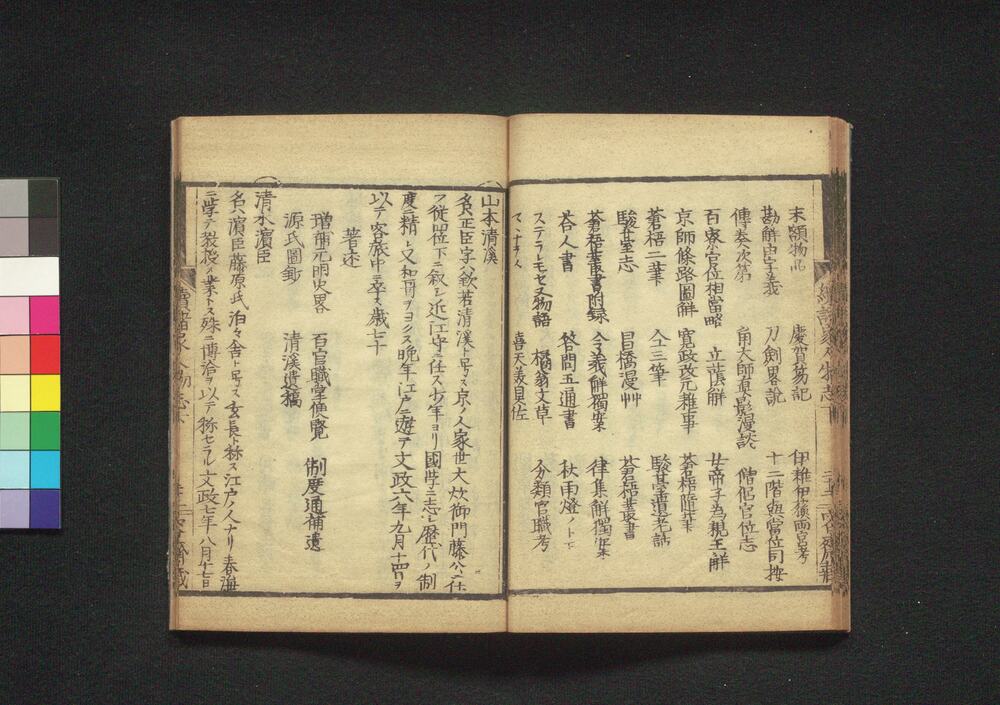 末額物語 慶賀蒭記 伊雜伊葅両宮考
勘解由字義 刀劍畧說 十二階與當位同按
傳奏次第 角大師眞影漫談 僧侶官位志
百寮官位相當略 立䕃解 廿帝子為親王解
京師條路圖解 寛政改元雜事 蒼梧隨筆
蒼梧二筆 仝三筆 駿臺遺老話
駿臺志 昌橋漫艸 蒼梧叢書
蒼梧叢書附録 令義解獨案 律集解獨案
答人書 答問五通書 秋雨燈ノトモ
ステラレモセヌ物語 橘翁文草 分類官職考
マコナスヘ 喜天美貝佐
山本清溪
名ハ正臣字ハ欽若清溪ト号ス京ノ人家世大炊御門藤公ニ仕
フ従四位下ニ叙シ近江守ニ任ス少年ヨリ國學ニ志シ歷代ノ制
度ニ精シ又和哥ヲヨクス晩年江戶ニ遊テ文政六年九月十四日ヲ
以テ客旅中ニ卒ス歳七十
著述
增補元明史畧 百官職掌便覽 制度通補遺
源氏圖鈔 清溪遺稿
清水濱臣
名ハ濱臣藤原氏泊々舎ト号ス玄長ト称ス江戶ノ人ナリ春海
ニ學テ教授ノ業トス殊ニ博洽ヲ以テ称セラル文政七年八月十七日
續諸家人物志下